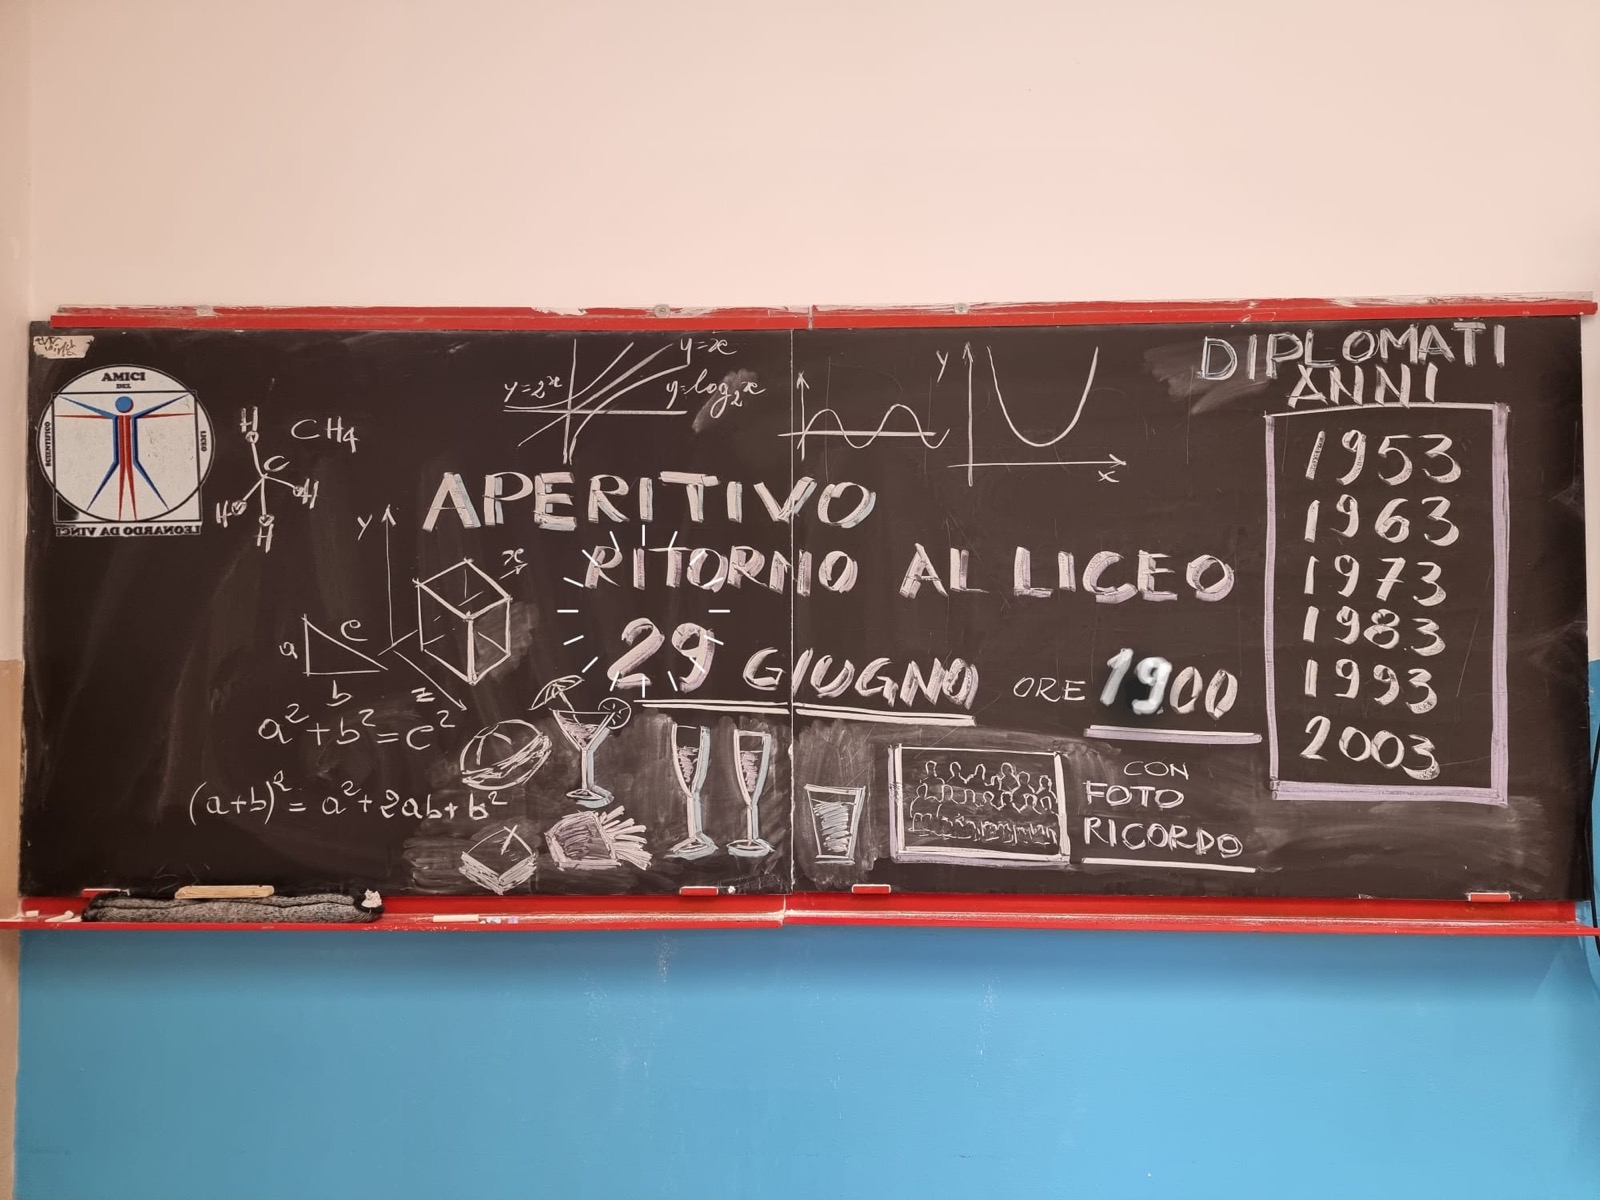 AMICI
DEL
LICEO
SCIENTIFICO
LEONARDO DA VINCI
H
C
H
H
H
CH4
y=2^x
y=x
y=log₂x
y
y
x
DIPLOMATI
ANNI
1953
1963
1973
1983
1993
2003
APERITIVO
RITORNO AL LICEO
29 GIUGNO ORE 1900
y
x
z
a
c
b
a²+b²=c²
(a+b)²=a²+2ab+b²
CON
FOTO
RICORDO